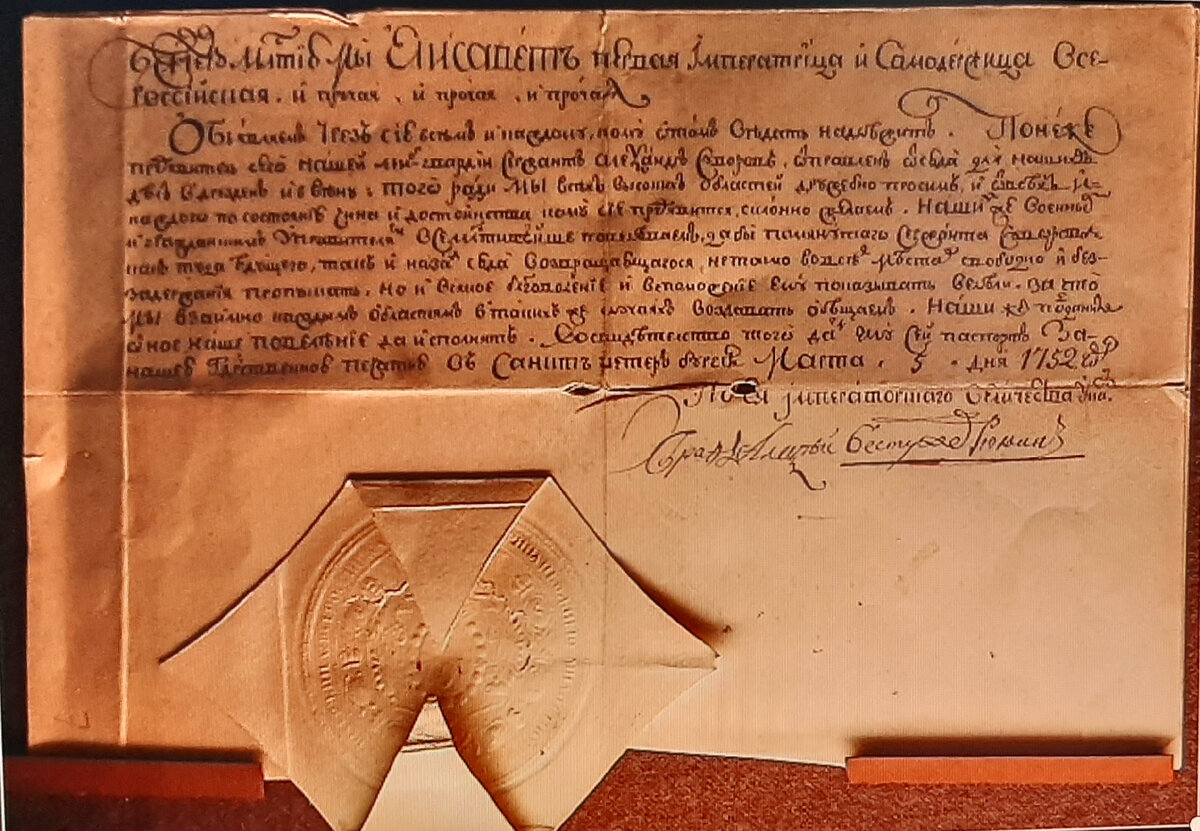 Бжїею млтїю мы Елисаветъ первая Императрица и Самодержица Все-
россїиская, и прочая, и прочая, и прочая
Объявляемъ чрезъ сїе всѣмъ и каждому, кому о томъ вѣдать надлежитъ. Понеже
сего нашей лейбъ гвардїи Сержантъ Алеѯандръ Суворовъ, отправленъ отсюда для нашихъ
дѣлъ в дрезденъ и в вѣну; того ради мы всѣхъ высокихъ областей дружебно просимъ, и
каждого по состоянїю чина и достоинства кому сїе предъявится, склонно желаемъ. Нашимъ же Военнымъ
и гражданскимъ Управителямъ Всемилостивѣйше повелѣваемъ, дабы помянутаго Сержанта Суворова
какъ туда Едущего, такъ и назадъ сюда возвращающагося, нетокмо вовсѣхъ мѣстахъ свободно и без-
задержанїя пропускать, но и всякое благоволенїе и вспоможенїе ему показывать велѣли. За что
мы взаимно каждымъ областямъ в такихъ же случаяхъ воздавать обѣщаемъ. Наши же подданные
оное наше повелѣнїе да исполнятъ. Восвидѣтелство того данъ ему сей паспортъ За-
нашею Гдственною печатью В Санктъ петербурге Марта 5 дня 1752 году
По Ея Императорского Величества указу
Графъ Алеѯѣй Бестужевъ Рюминъ